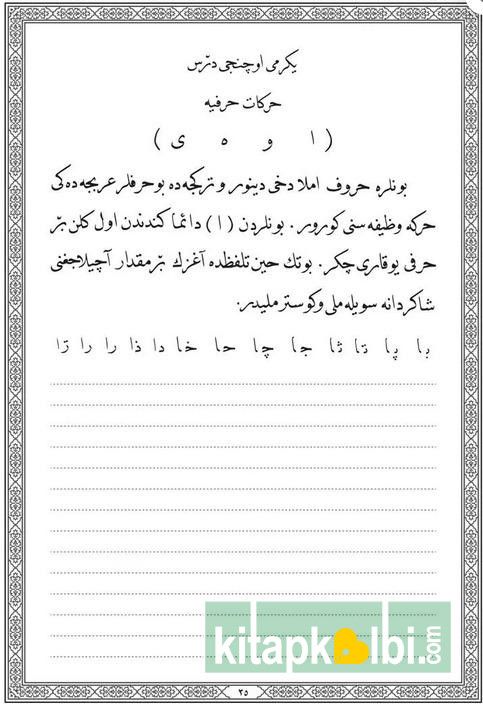 يكرمى اوچنجى درس
حركات حرفيه
( ا و ه ى )
بونلره حروف املا دخى دينور و تركجه ده بو حرفلر عربجه ده كى
حركه وظيفه سنى كورور. بونلردن (ا) دائما كندندن اول كلن بر
حرفى يوقارى چكر. بونك حين تلفظده آغزك بر مقدار آچيلاجغنى
شاكردانه سويله ملى و كوسترمليدر.
با پا تا ثا جا چا حا خا دا ذا را زا ژا
kitapkalbi.com
٢٥